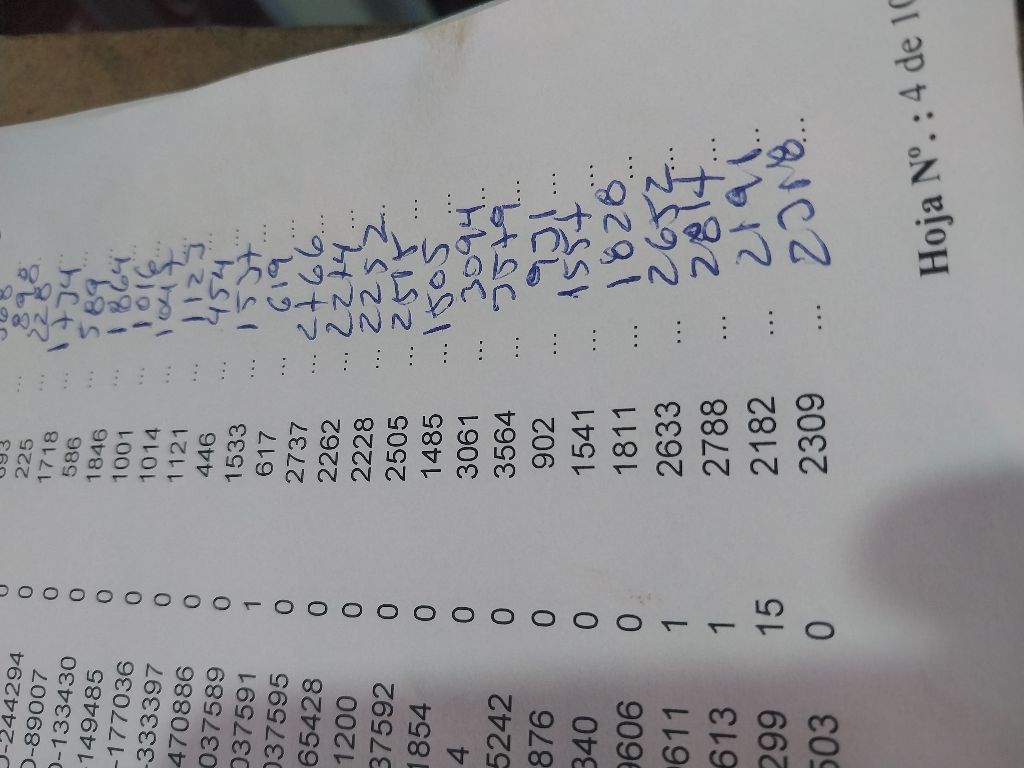 693 ... 898
0 225 ... 228
244294 0 1718 ... 1734 ...
-89007 0 586 ... 589 ...
-133430 0 1846 ... 1864 ...
-149485 0 1001 ... 1016 ...
-177036 0 1014 ... 1047 ...
-333397 0 1121 ... 1123 ...
470886 0 446 ... 454 ...
037589 1 1533 ... 1537 ...
037591 0 617 ... 619 ...
037595 0 2737 ... 2766 ...
65428 0 2262 ... 2274 ...
1200 0 2228 ... 2252 ...
37592 0 2505 ... 2515 ...
1854 0 1485 ... 1505 ...
4 0 3061 ... 3094 ...
5242 0 3564 ... 3579 ...
876 0 902 ... 931 ...
340 0 1541 ... 1557 ...
9606 0 1811 ... 1828 ...
611 1 2633 ... 2652 ...
613 1 2788 ... 2817 ...
299 15 2182 ... 2191 ...
503 0 2309 ... 2318 ...
Hoja Nº. : 4 de 10